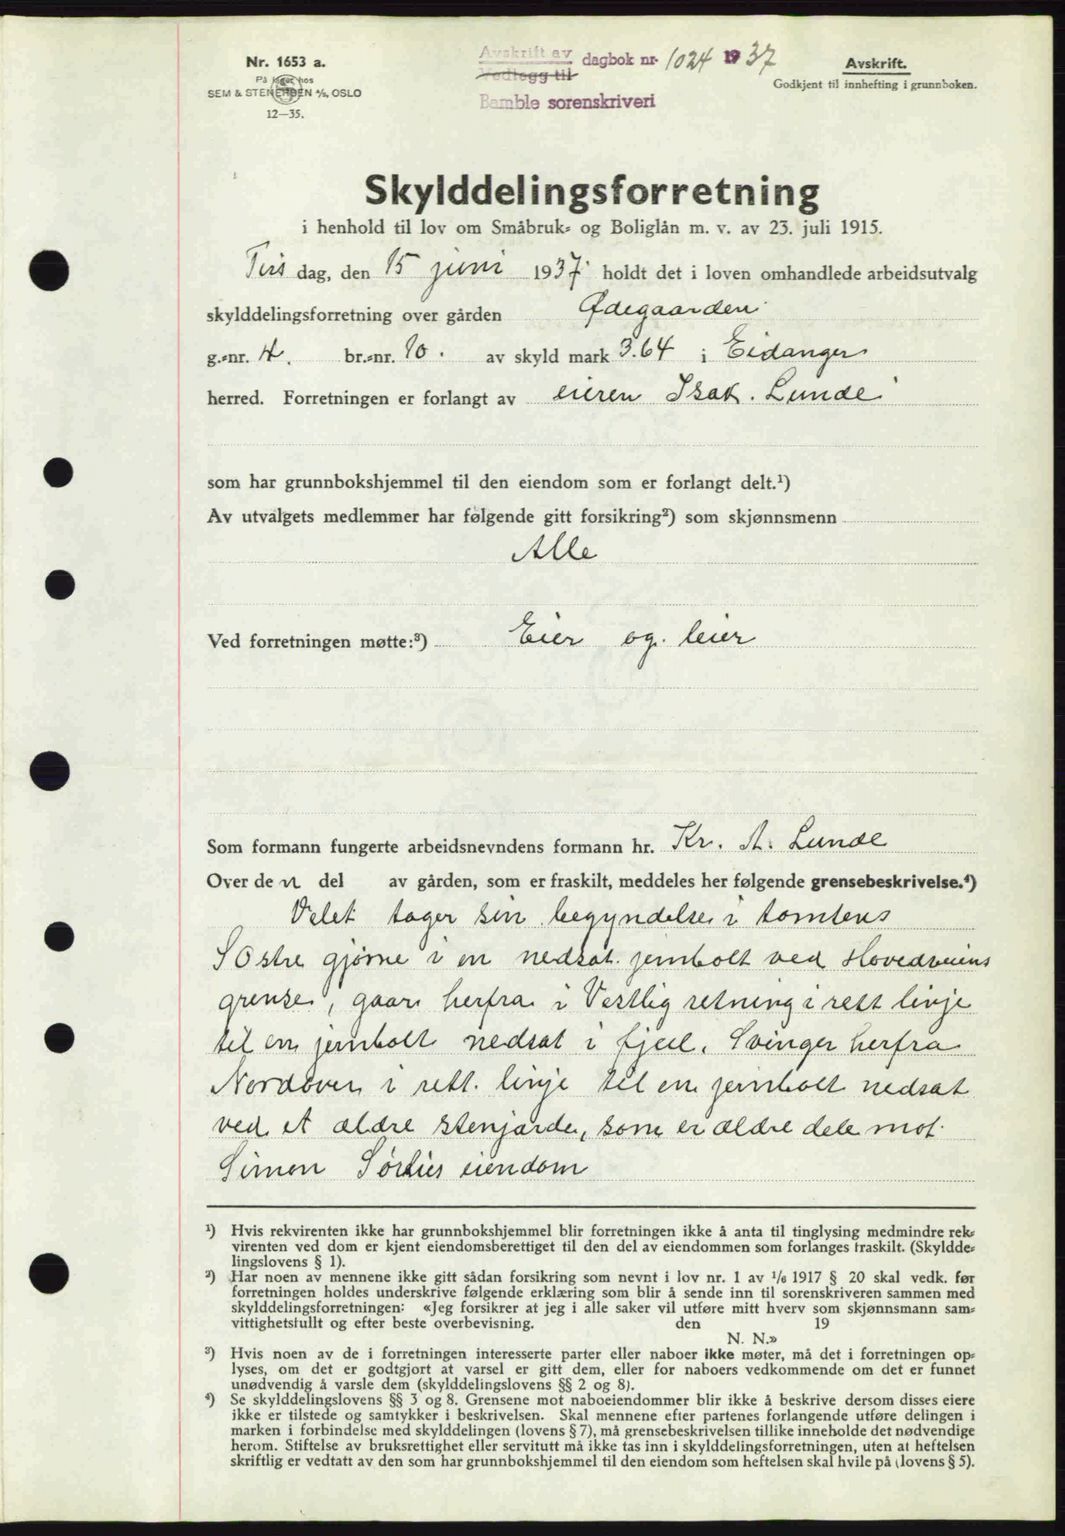 Nr. 1653 a.
På lager hos
SEM & STENERSEN A/S, OSLO
12—35.
Avskrift av dagbok nr. 1024 1937
Vedlegg til
Bamble sorenskriveri
Avskrift.
Godkjent til innhefting i grunnboken.
Skylddelingsforretning
i henhold til lov om Småbruk- og Boliglån m. v. av 23. juli 1915.
Tirsdag, den 15 juni 1937 holdt det i loven omhandlede arbeidsutvalg
skylddelingsforretning over gården Ødegaarden
g.-nr. 4. br.-nr. 10. av skyld mark 3.64 i Eidanger
herred. Forretningen er forlangt av eieren Isak. Lunde
som har grunnbokshjemmel til den eiendom som er forlangt delt.¹)
Av utvalgets medlemmer har følgende gitt forsikring²) som skjønnsmenn
Alle
Ved forretningen møtte:³) Eier og leier
Som formann fungerte arbeidsnevndens formann hr. Kr. A. Lunde
Over den del av gården, som er fraskilt, meddeles her følgende grensebeskrivelse.⁴)
Delet tager sin begyndelse i tomtens
SØstre gjørne i en nedsat jernbolt ved Hovedveiens
grense, gaar herfra i Vestlig retning i rett linje
til en jernbolt nedsat i fjell. Svinger herfra
Nordover i rett linje til en jernbolt nedsat
ved et ældre stenjærde, som er ældre dele mot
Simon eiendom
¹) Hvis rekvirenten ikke har grunnbokshjemmel blir forretningen ikke å anta til tinglysing medmindre rek-
virenten ved dom er kjent eiendomsberettiget til den del av eiendommen som forlanges fraskilt. (Skyldde-
lingslovens § 1).
²) Har noen av mennene ikke gitt sådan forsikring som nevnt i lov nr. 1 av 1/6 1917 § 20 skal vedk. før
forretningen holdes underskrive følgende erklæring som blir å sende inn til sorenskriveren sammen med
skylddelingsforretningen: «Jeg forsikrer at jeg i alle saker vil utføre mitt hverv som skjønnsmann sam-
vittighetsfullt og efter beste overbevisning. den 19
N. N.»
³) Hvis noen av de i forretningen interesserte parter eller naboer ikke møter, må det i forretningen op-
lyses, om det er godtgjort at varsel er gitt dem, eller for naboers vedkommende om det er funnet
unødvendig å varsle dem (skylddelingslovens §§ 2 og 8).
⁴) Se skylddelingslovens §§ 3 og 8. Grensene mot naboeiendommer blir ikke å beskrive dersom disses eiere
ikke er tilstede og samtykker i beskrivelsen. Skal mennene efter partenes forlangende utføre delingen i
marken i forbindelse med skylddelingen (lovens § 7), må grensebeskrivelsen tillike inneholde det nødvendige
herom. Stiftelse av bruksrettighet eller servitutt må ikke tas inn i skylddelingsforretningen, uten at heftelsen
skriftlig er vedtatt av den som har grunnbokshjemmel til den eiendom som heftelsen skal hvile på (lovens § 5).